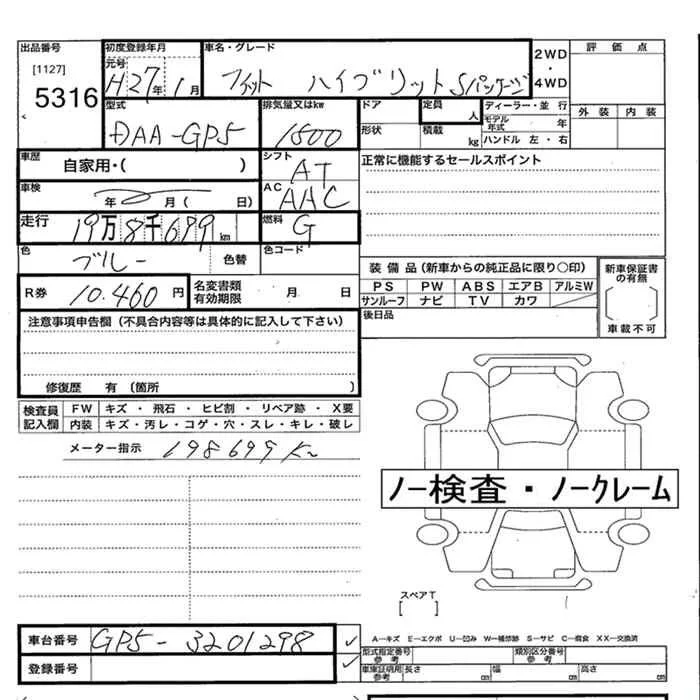 出品番号 初度登録年月 車名・グレード 2WD 評価点
[1127] 元号
5316 H27年1月 フィット ハイブリット Sパッケージ ・ 4WD
型式 排気量又はkw ドア 定員 人 ディーラー・並行 外装 内装
DAA-GP5 1500 形状 積載 kg モデル年式 年
ハンドル 左・右
車歴 自家用・( ) シフト AT 正常に機能するセールスポイント
車検 年 月( 日) AC AAC
走行 19万8千699km 燃料 G
色 ブルー 色替 色コード
装備品(新車からの純正品に限り○印) 新車保証書の有無
R券 10.460円 名変書類有効期限 月 日 PS PW ABS エアB アルミW
サンルーフ ナビ TV カワ
注意事項申告欄(不具合内容等は具体的に記入して下さい) 後日品 車載不可
修復歴 有(箇所 )
検査員記入欄 FW キズ・飛石・ヒビ割・リペア跡・X要
内装 キズ・汚レ・コゲ・穴・スレ・キレ・破レ
メーター指示 198699K
ノー検査・ノークレーム
スペアT
[ ]
車台番号 GP5-3201298 A-キズ E-エクボ U-凹み W-補修跡 S-サビ C-腐食 XX-交換済
型式指定番号 参考 類別区分番号 参考
登録番号 車庫証明用 参考 長さ cm 幅 cm 高さ cm